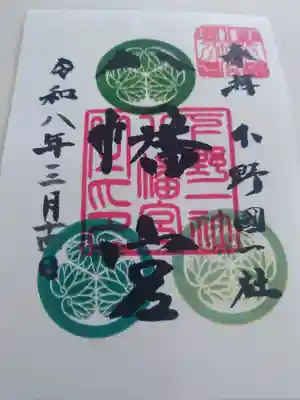 奉拝
下野國一社
八幡宮
令和八年三月十四日